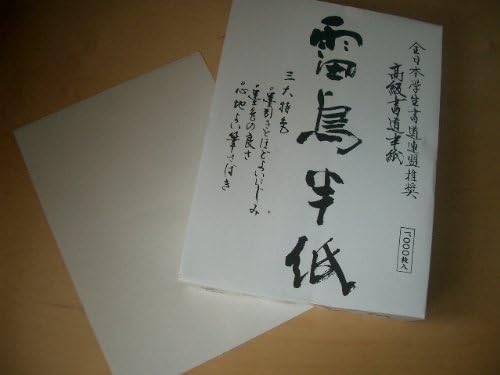 全日本学生書道連盟推奨
高級書道半紙
雷鳥半紙
三大特色
墨引きとほどよいにじみ
墨色の良さ
心地よい筆さばき
1,000枚入